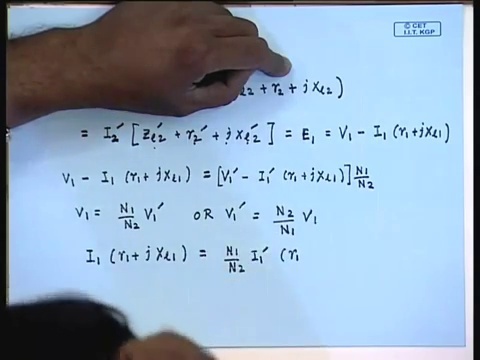 © CET
I.I.T. KGP
+ r₂ + j x_l2)
= I₂′ [Z_l2′ + r₂′ + j x_l2′] = E₁ = V₁ − I₁ (r₁ + j x_l1)
V₁ − I₁ (r₁ + j x_l1) = [V₁′ − I₁′ (r₁ + j x_l1)] N₁/N₂
V₁ = N₁/N₂ V₁′ OR V₁′ = N₂/N₁ V₁
I₁ (r₁ + j x_l1) = N₁/N₂ I₁′ (r₁